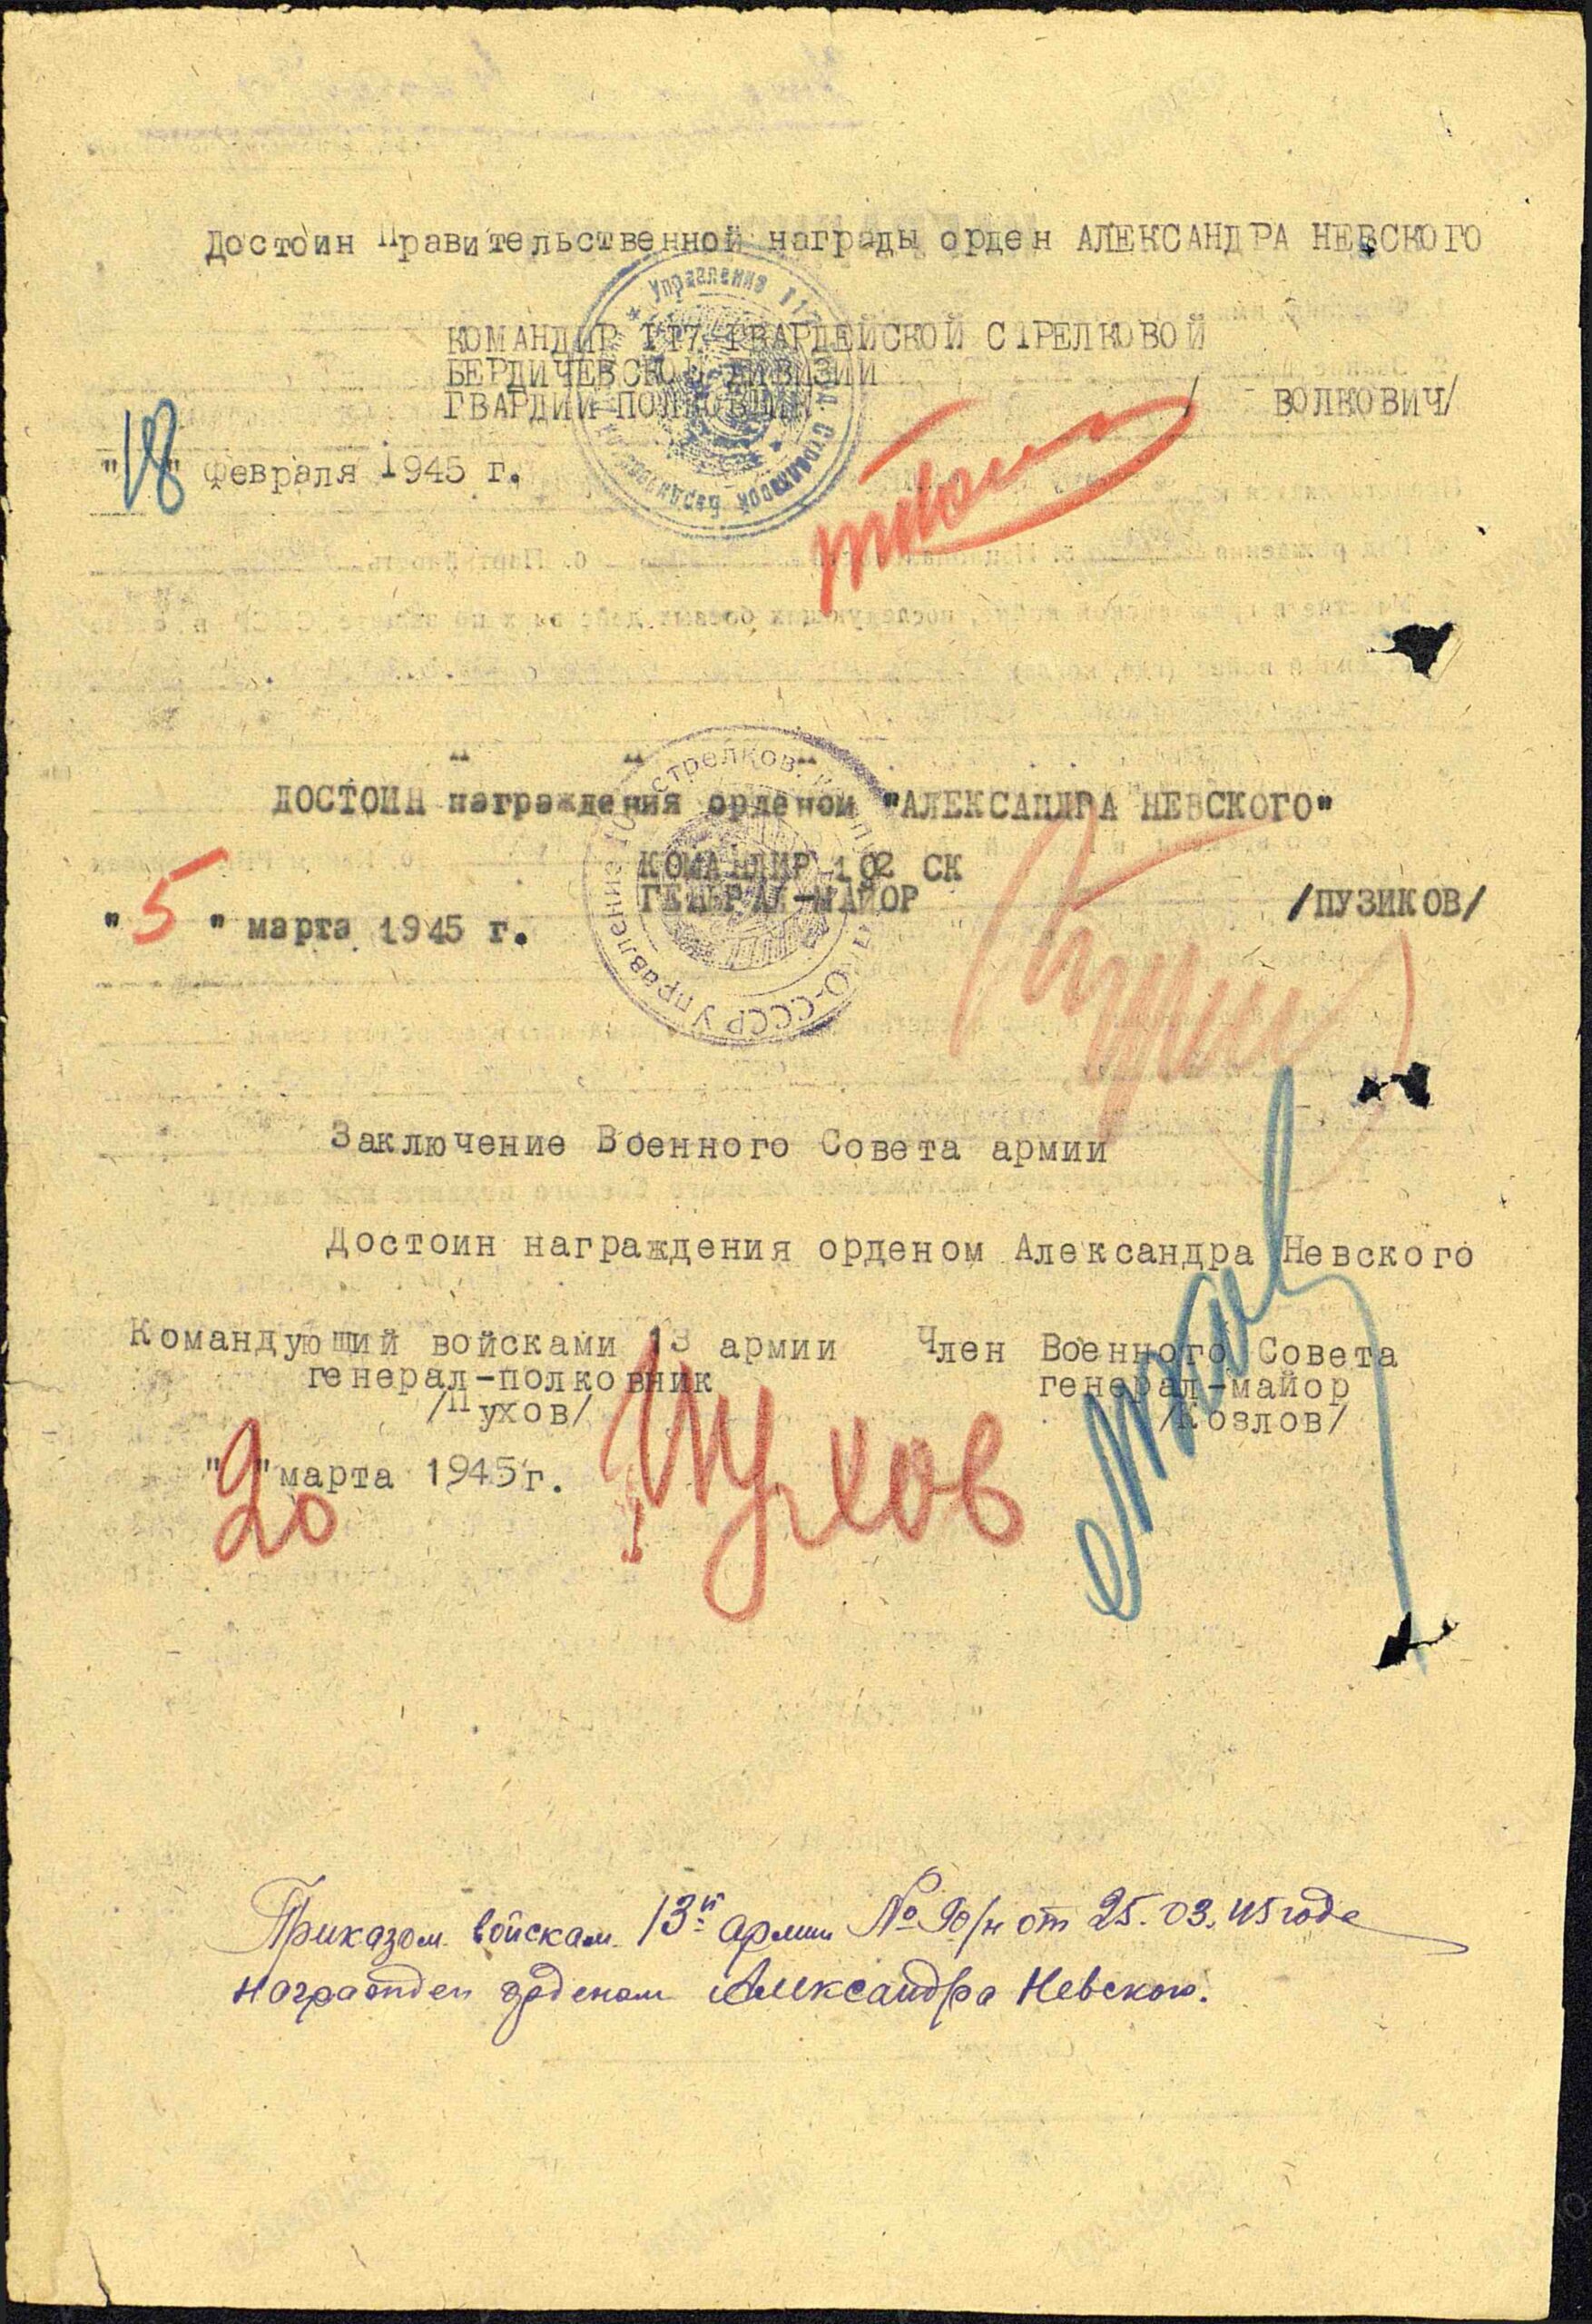 Достоин Правительственной награды орден АЛЕКСАНДРА НЕВСКОГО
КОМАНДИР 117 ГВАРДЕЙСКОЙ СТРЕЛКОВОЙ
БЕРДИЧЕВСКОЙ ДИВИЗИИ
ГВАРДИИ ПОЛКОВНИК / ВОЛКОВИЧ/
"18" Февраля 1945 г.
Управление
ДОСТОИН награждения орденом "АЛЕКСАНДРА НЕВСКОГО"
КОМАНДИР 102 СК
ГЕНЕРАЛ-МАЙОР /ПУЗИКОВ/
"5" марта 1945 г.
Управление стрелков. НКО-СССР
Заключение Военного Совета армии
Достоин награждения орденом Александра Невского
Командующий войсками 13 армии Член Военного Совета
генерал-полковник генерал-майор
/Пухов/ /Козлов/
Пухов
"20" марта 1945 г.
Приказом войскам 13й армии № 90/н от 25.03.45 года
награжден орденом Александра Невского.